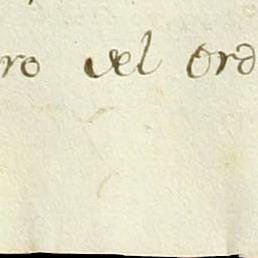 ro del Ord